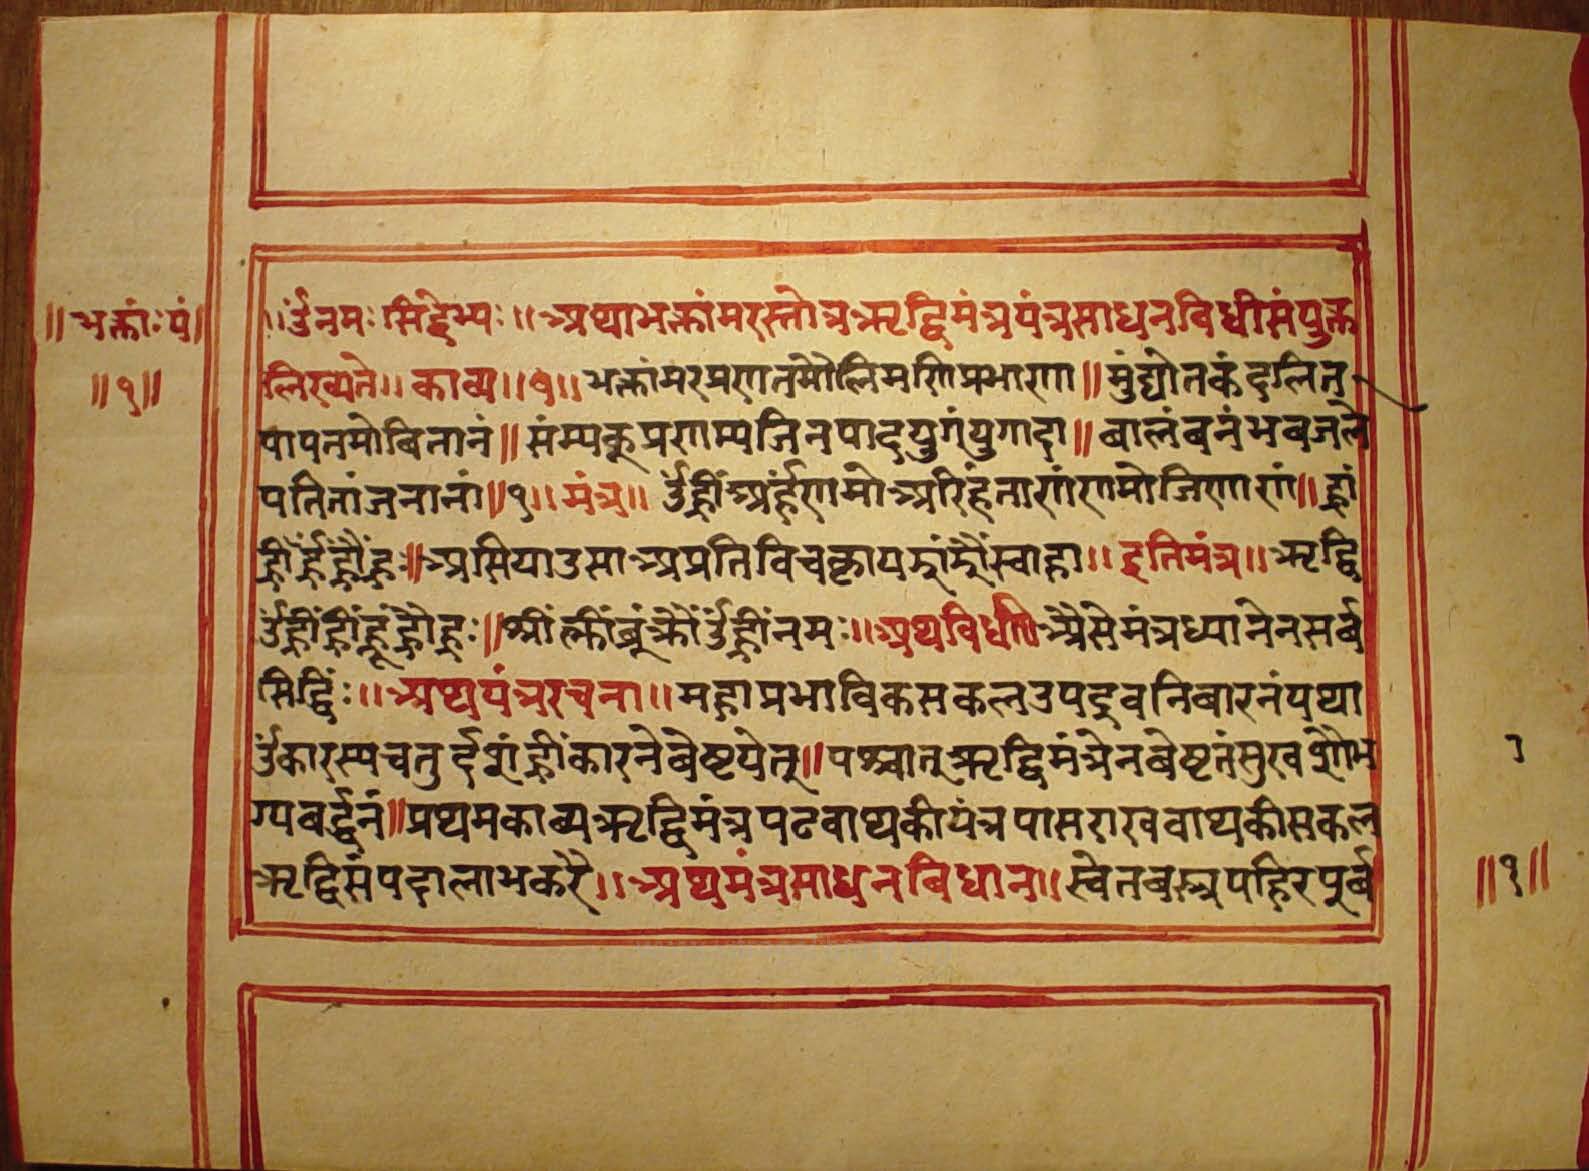 ॥भक्तांः यं॥
॥१॥
॥ॐनमः सिद्धेभ्यः॥अथाभक्तांमरस्तोत्रऋद्धिमंत्रयंत्रसाधनविधीसंयुक्त
लिख्यते॥काव्य॥ भक्तांमरप्रणतमौलिमणिप्रभाणा॥मुंद्योतकंदलित
पापतमोबितानं॥संम्यक्प्रणाम्यजिनपादयुगंयुगादा॥बालंबनंभवजले
पतितांजनानां॥१॥मंत्र॥ ॐह्रींअर्हंणमोअरिहंताणंणमोजिणाणं॥ह्रां
असियाउसाअप्रतिविचक्राय स्वाहा॥इतिमंत्र॥ऋद्धि
ॐह्रीं नमः॥अथविधी॥अैसेमंत्रध्यानेनसर्ब
सिद्धिंः॥अथयंत्ररचना॥महाप्रभाविकसकलउपद्रवनिबारनंयथा
ॐकारस्यचतुर्दशंह्रींकारनेबेष्टयेत्॥पश्चात्ऋद्धिमंत्रेनबेष्टतंसुखशोभ
ग्यबर्द्धनं॥प्रथमकाव्यऋद्धिमंत्रपटवाथकीयंत्रपासराखवाथकीसकल
ऋद्धिसंपदालाभकरै॥अथमंत्रसाधनबिधान॥स्वेतबस्त्रपहिरपुर्ब
॥१॥